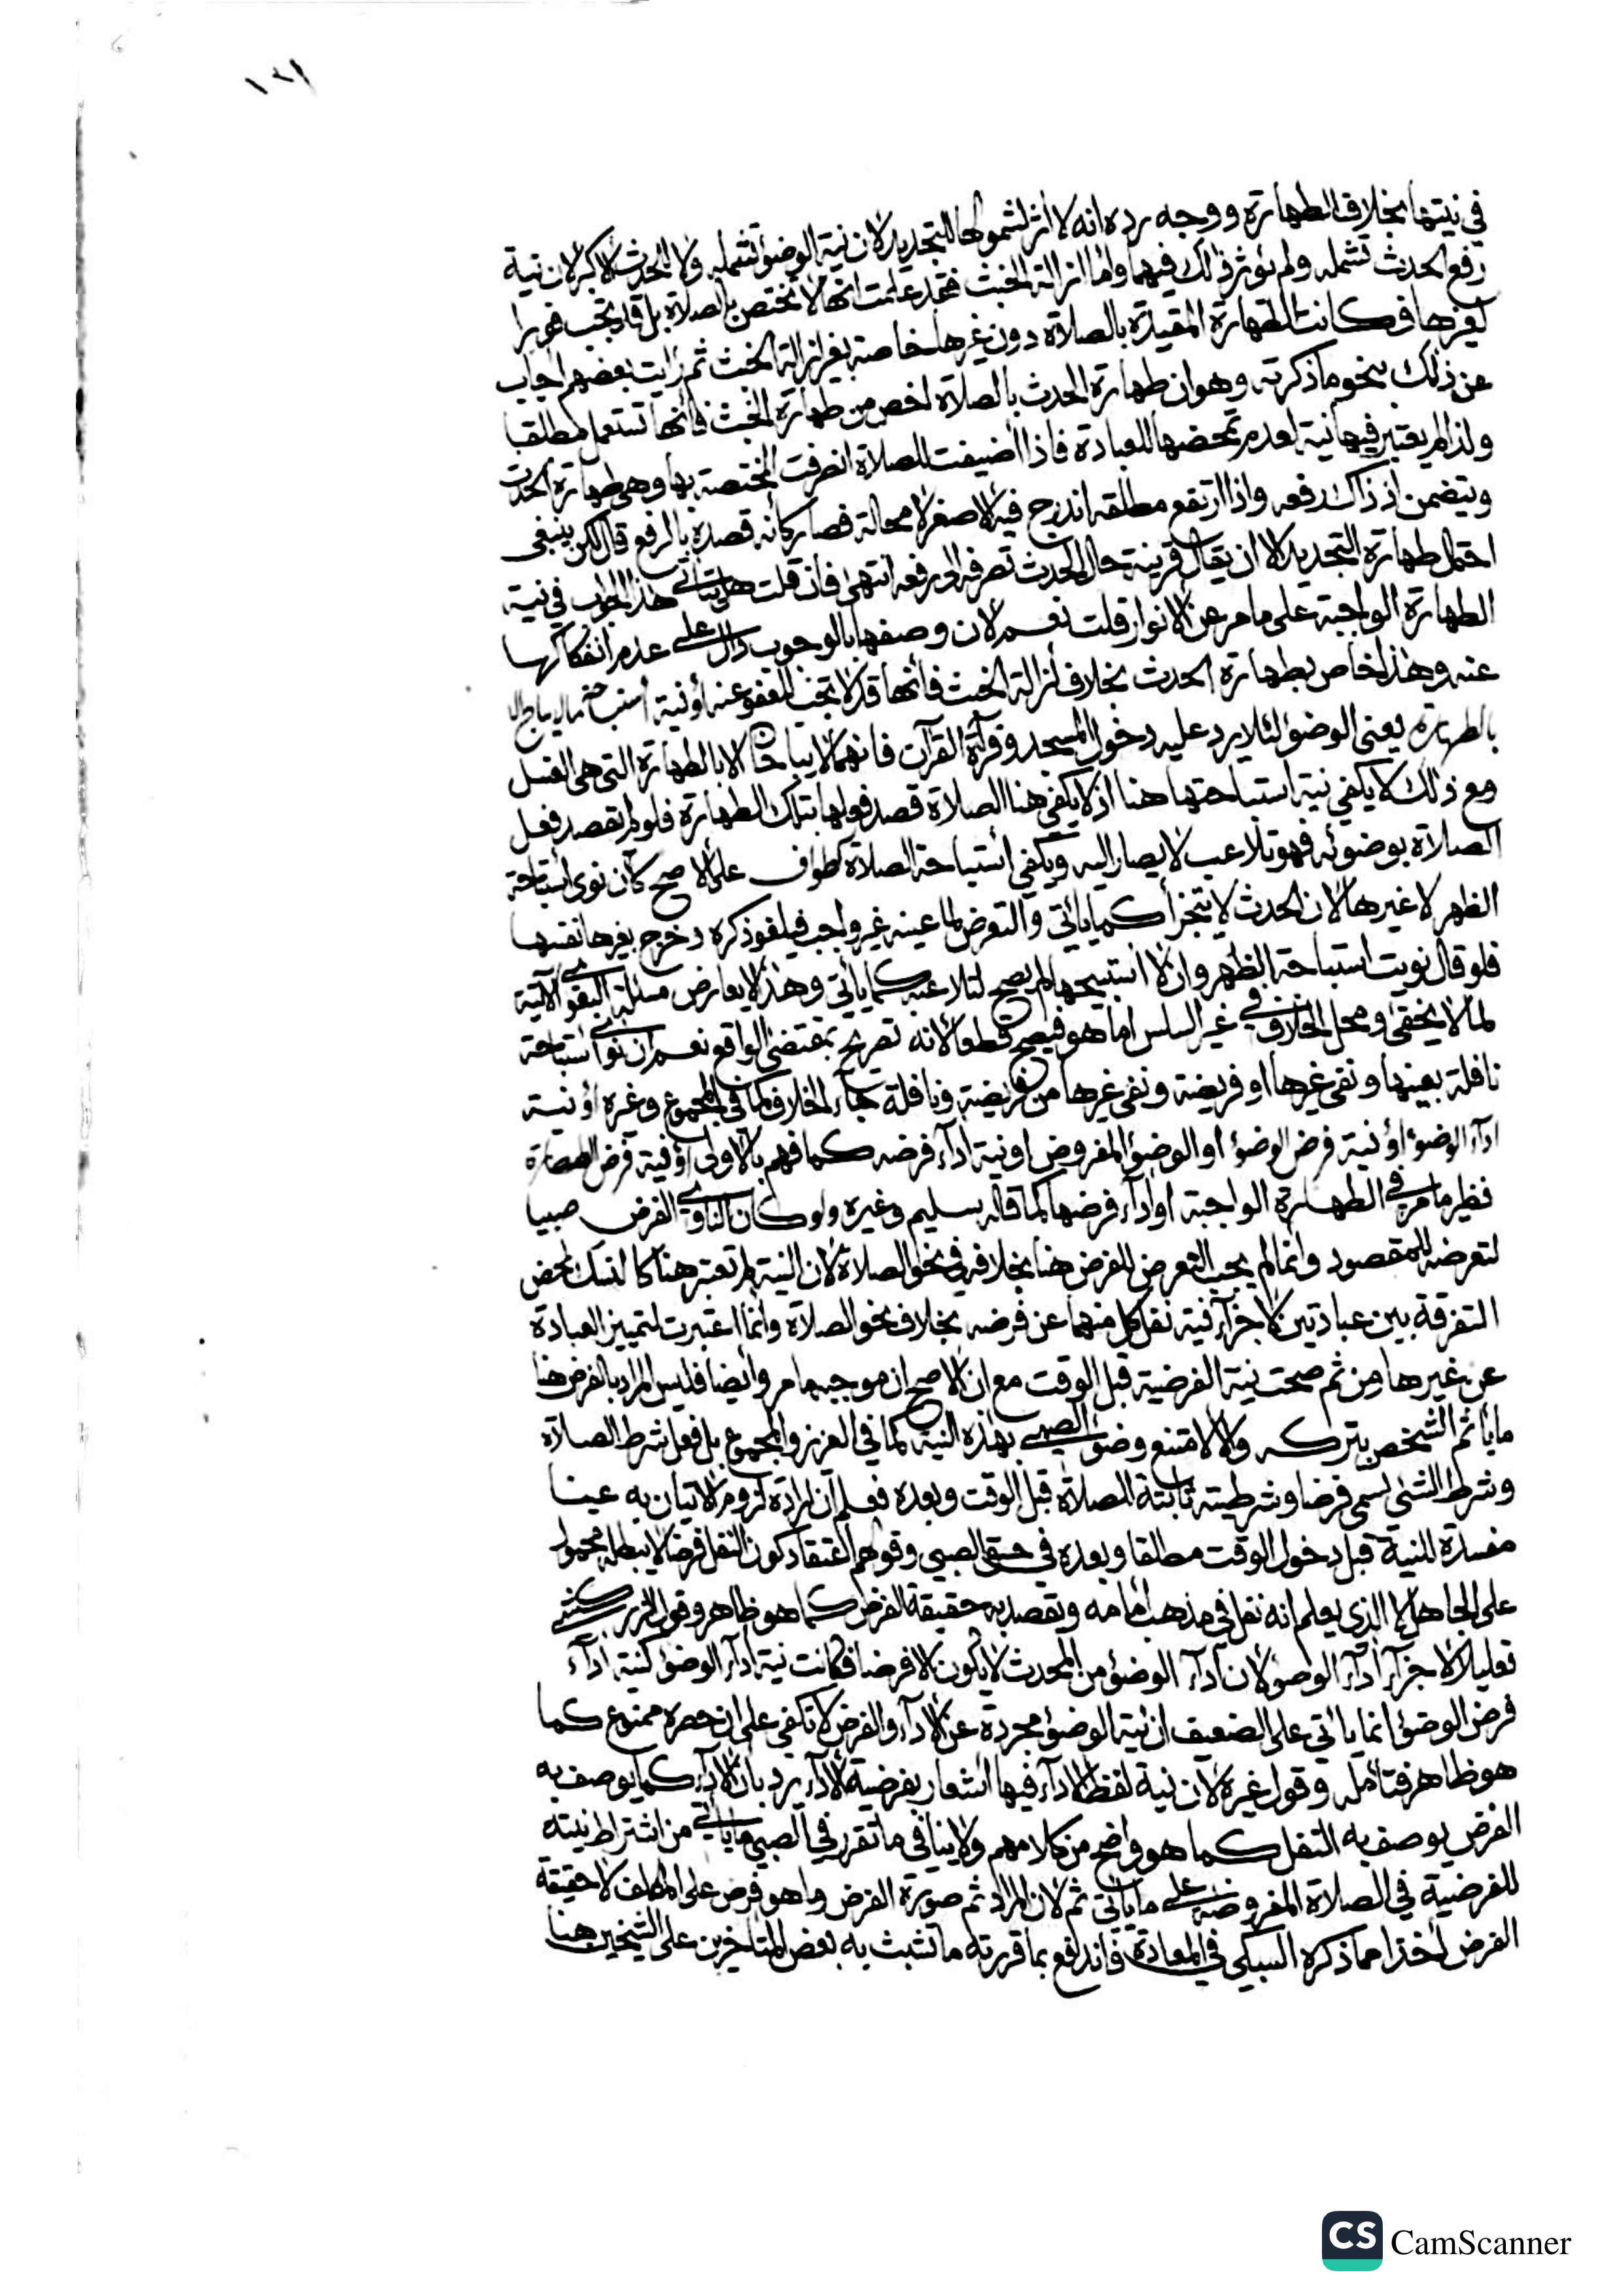 ١٢١
في نيتها بخلاف الطهارة ووجه رده انه لا أثر لشمولها للتجديد لان نية الوضؤ تشمله ولا للحدث الاكبر لان نية
رفع الحدث تشمله ولم يؤثر ذلك فيهما واما ازالة الخبث فقد علمت انها لا تختص بالصلاة بل قد تجب فورا
لغيرها فكانت الطهارة المقيدة بالصلاة دون غيرها خاصة بغير ازالة الخبث ثم رأيت بعضهم أجاب
عن ذلك بنحو ما ذكرته وهو ان طهارة الحدث بالصلاة اخص من طهارة الخبث فانها تستعمل مطلقا
ولذا لم يعتبر فيها نية لعدم تمحضها للعبادة فاذا أضيفت للصلاة انصرفت للمختصة بها وهي طهارة الحدث
ويتضمن اذ ذاك رفعه واذا ارتفع مطلقه اندرج فيه الاصغر لا محالة فصار كأنه قصده بالرفع قال لكن ينبغي
احتمال طهارة التجديد الا ان يقال قرينة حال المحدث تصرفه الى رفعه انتهى فان قلت هل يتأتى هذا الجواب في نية
الطهارة الواجبة على ما مر عن الانوار قلت نعم لان وصفها بالوجوب دال على عدم انفكاكها
عنه وهذا خاص بطهارة الحدث بخلاف ازالة الخبث فانها قد لا تجب للعفو عنه أو نية
بالطهارة يعني الوضؤ لئلا يرد عليه دخول المسجد وقرأة القرآن فانهما لا يباحان الا بالطهارة التي هي الغسل
ومع ذلك لا يكفي نية استباحتها هنا اذ لا يكفي هنا الصلاة قصد فعلها بتلك الطهارة فلو لم يقصد فعل
الصلاة بوضوئه فهو تلاعب لا يصار اليه ويكفي استباحة الصلاة كطواف على الاصح كأن نوى استباحة
الظهر لا غيرها لان الحدث لا يتجزأ كما يأتي والتعرض لما عينه غير واجب فيلغو ذكره وخرج بغيرها نفسها
فلو قال نويت استباحة الظهر وان لا استبيحها لم يصح لتلاعبه كما يأتي وهذا لا يعارض مسئلة البغوي الآتية
لما لا يخفى ومحل الخلاف في غير السلس اما هو فيصح قطعا لانه تصريح بمقتضى الواقع نعم ان نوى استباحة
نافلة بعينها ونفى غيرها او فريضة ونفى غيرها من فريضة ونافلة جاء الخلاف كما في المجموع وغيره أو نية
ادآء الوضوء او نية فرض الوضؤ او الوضؤ المفروض او نية ادآء فرضه كما فهم بالاولى او نية فرض الطهارة
نظير ما مر في الطهارة الواجبة او ادآء فرضها كما قاله سليم وغيره ولو كان الناوي الفرض صبيا
لتعرضه للمقصود وانما لم يجب التعرض للفرض هنا بخلافه في نحو الصلاة لان النية لم تعتبر هنا كالنسك لمحض
التفرقة بين عبادتين لاجزآء نية نفل كل منهما عن فرضه بخلاف نحو الصلاة وانما اعتبرت لتمييز العبادة
عن غيرها ومن ثم صحت نية الفرضية قبل الوقت مع ان الاصح ان موجبها مر وأيضا فليس المراد بالفرض هنا
ما يأثم الشخص بتركه والا لامتنع وضؤ الصبي بهذه النية كما في العزيز والمجموع بل فعل شرط الصلاة
وشرط الشئ يسمى فرضا وشرطيته ثابتة للصلاة قبل الوقت وبعده فعلم ان ارادة لزوم الاتيان به عينا
مفسدة للنية قبل دخول الوقت مطلقا وبعده في حق الصبي وقولهم اعتقاد كون النفل فرضا لا يبطله محمول
على الجاهل لا الذي يعلم انه نفل في مذهب امامه ويقصد به حقيقة الفرض كما هو ظاهر وقول الزركشي
تعليلا لاجزآء ادآء الوضؤ لان ادآء الوضؤ من المحدث لا يكون الا فرضا فكانت نية ادآء الوضؤ كنية ادآء
فرض الوضؤ انما يأتي على الضعيف ان نية الوضؤ مجردة عن الادآء والفرض لا تكفي على ان حصره ممنوع كما
هو ظاهر فتأمله وقول غيره لان نية لفظ الادآء فيها اشعار بفرضية الادآء يرد بان الادآء كما يوصف به
الفرض يوصف به النفل كما هو واضح من كلامهم ولا ينافي ما تقرر في الصبي ما يأتي من اشتراط نيته
للفرضية في الصلاة المفروضة على ما يأتي ثم لان المراد ثم صورة الفرض وما هو فرض على المكلف لا حقيقة
الفرض اخذا مما ذكره السبكي في المعادة فاندفع بما قررته ما تشبث به بعض المتأخرين على الشيخين هنا
CS CamScanner